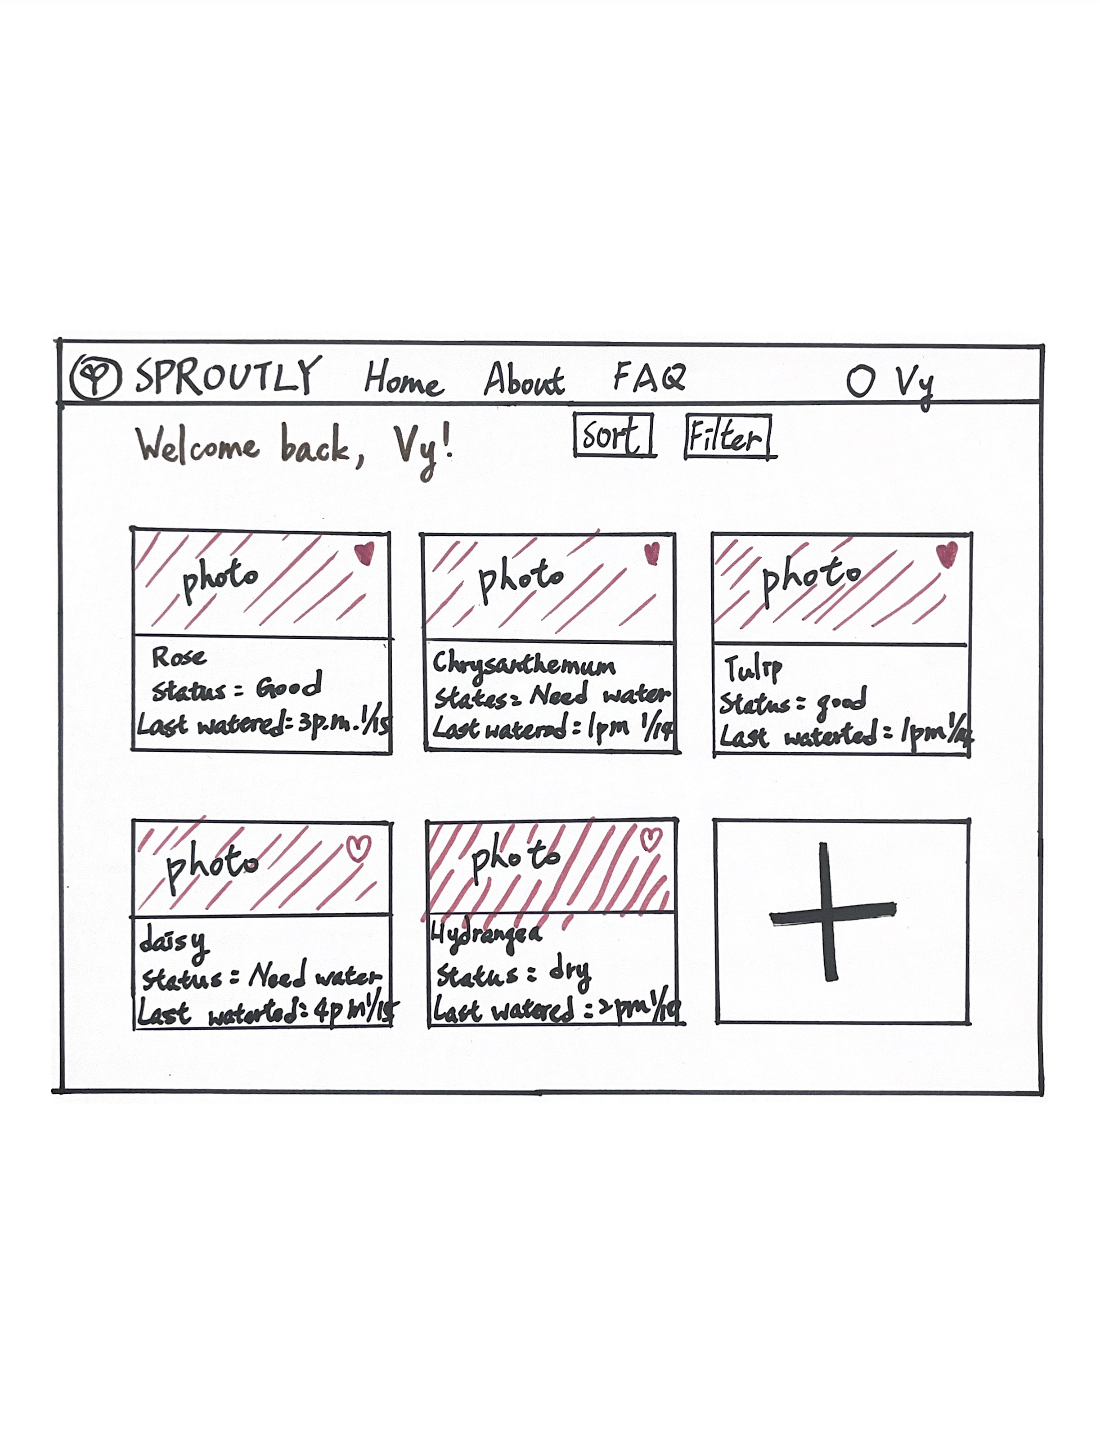 SPROUTLY Home About FAQ Vy
Welcome back, Vy! Sort Filter
photo
Rose
Status = Good
Last watered = 3p.m. 1/15
photo
Chrysanthemum
States = Need water
Last watered = 1pm 1/14
photo
Tulip
Status = good
Last waterted = 1pm 1/14
photo
daisy
Status = Need water
Last waterted = 4pm 1/15
photo
Hydrangea
Status = dry
Last watered = 2pm 1/10